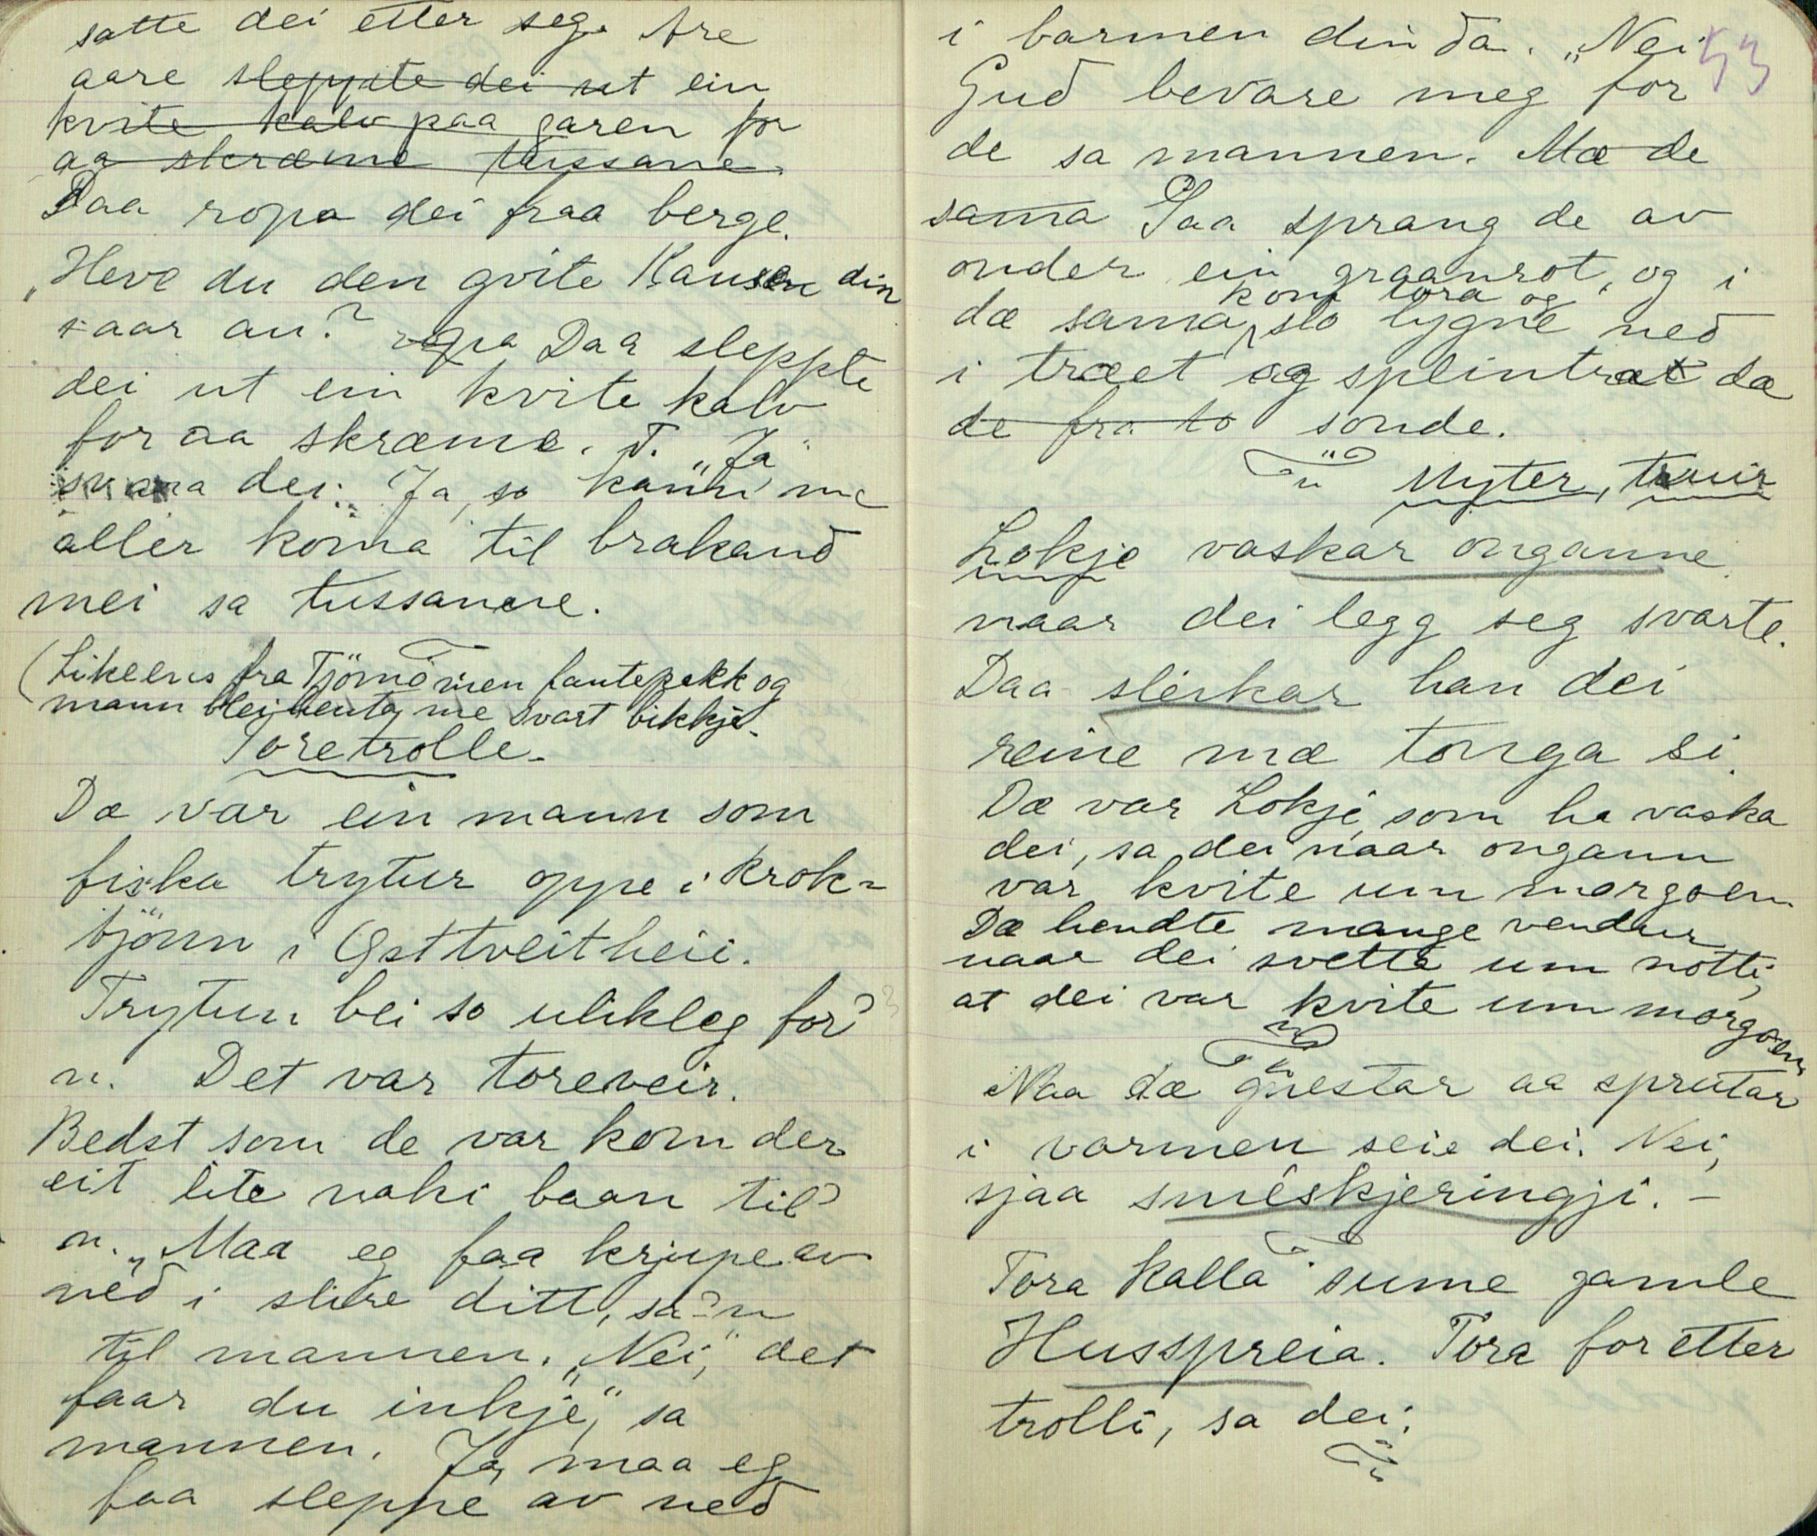 satte dei etter seg. Are
aare sleppte dei ut ein
kvite kalv paa garen for
aa skræme tussane.
Daa ropa dei fraa berge.
"Heve du den gvite Kausen din
aar au? ropa Daa sleppte
dei ut ein kvite kalv
for aa skræme. T. "Ja"
svara dei. Ja, so kann me
aller koma til brakand
mei sa tussanere.
(Likeens fra Tjörno men fantepakk og
mann blei henta me svart bikkje.
Toretrolle.
Dæ var ein mann som
fiska trytur oppe i Krok-
tjönn i Gsttveitheii.
Trytun bei so ulikleg for
n. Det var toreveir.
Bedst som de var kom der
eit lite naki baan til
n. "Maa eg faa krjupe av
ned i slire ditt, sa n
til mannen. "Nei," det
faar du inkje," sa
mannen. Ja, maa eg
faa sleppe av ned
53
i barmen din da. "Nei
Gud bevare meg for
de sa mannen. Mæ de
sama Saa sprang de av
onder ein graanrot, og i
kom tora og
dæ sama slo lygne ned
i træet og splintrat dæ
de fra to sonde.
Myter, truir
Lokje vaskar onganne
naar dei legg seg svarte.
Daa sleikar han dei
reine mæ tonga si.
Dæ var Lokje som ha vaska
dei, sa dei naar ongann
var kvite um morgoen.
Dæ hendte mange vendur
naar dei svette um notti,
at dei var kvite um morgoen
Naa dæ gnestar aa sprutar
i varmen seie dei. Nei,
sjaa sméskjeringji. –
Tora kalla sume gamle
Husspreia. Tora for etter
trolli, sa dei.